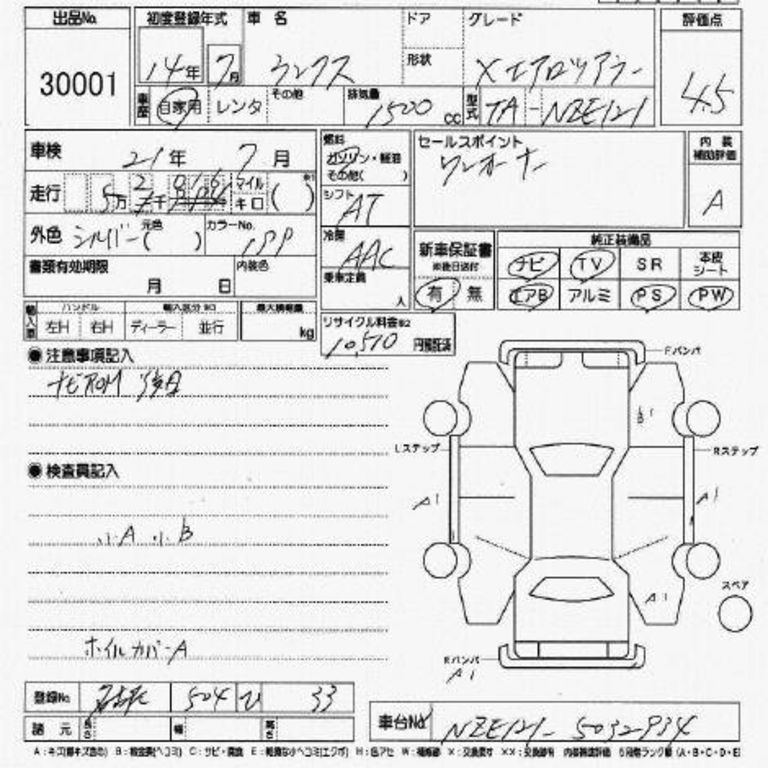 出品No. 初度登録年式 車名 ドア グレード 評価点
30001 14年 7月 ランクス 形状 Xエアロツアラー 4.5
車歴 自家用 レンタ その他 排気量 1500 cc 型式 TA-NZE121
車検 21年 7月 燃料 ガソリン・軽油 その他( ) セールスポイント ワンオーナー 内装補助評価
走行 万 千 マイル キロ ( ) シフト AT A
外色 シルバー 元色 ( ) カラーNo. 1PP 冷房 AAC 新車保証書 ※後日送付 純正装備品
ナビ TV SR 本皮シート
書類有効期限 月 日 内装色 乗車定員 人 有 無 エアB アルミ PS PW
輸入車 ハンドル 左H 右H 輸入区分 ディーラー 並行 最大積載量 kg リサイクル料金※2 10,510 円預託済
●注意事項記入 Fバンパ
ナビROM
B1
Lステップ Rステップ
●検査員記入
A1 A1
小A 小B
スペア
A1
ホイルカバーA Rバンパ
A1
登録No. 504 ひ 33
諸元 長さ 幅 高さ 車台No. NZE121-5032934
A:キズ(線キズ含む) B:板金要(ヘコミ) C:サビ・腐食 H:色アセ W:補修跡 X:交換要す XX:交換跡有 (A・B・C・D・E)